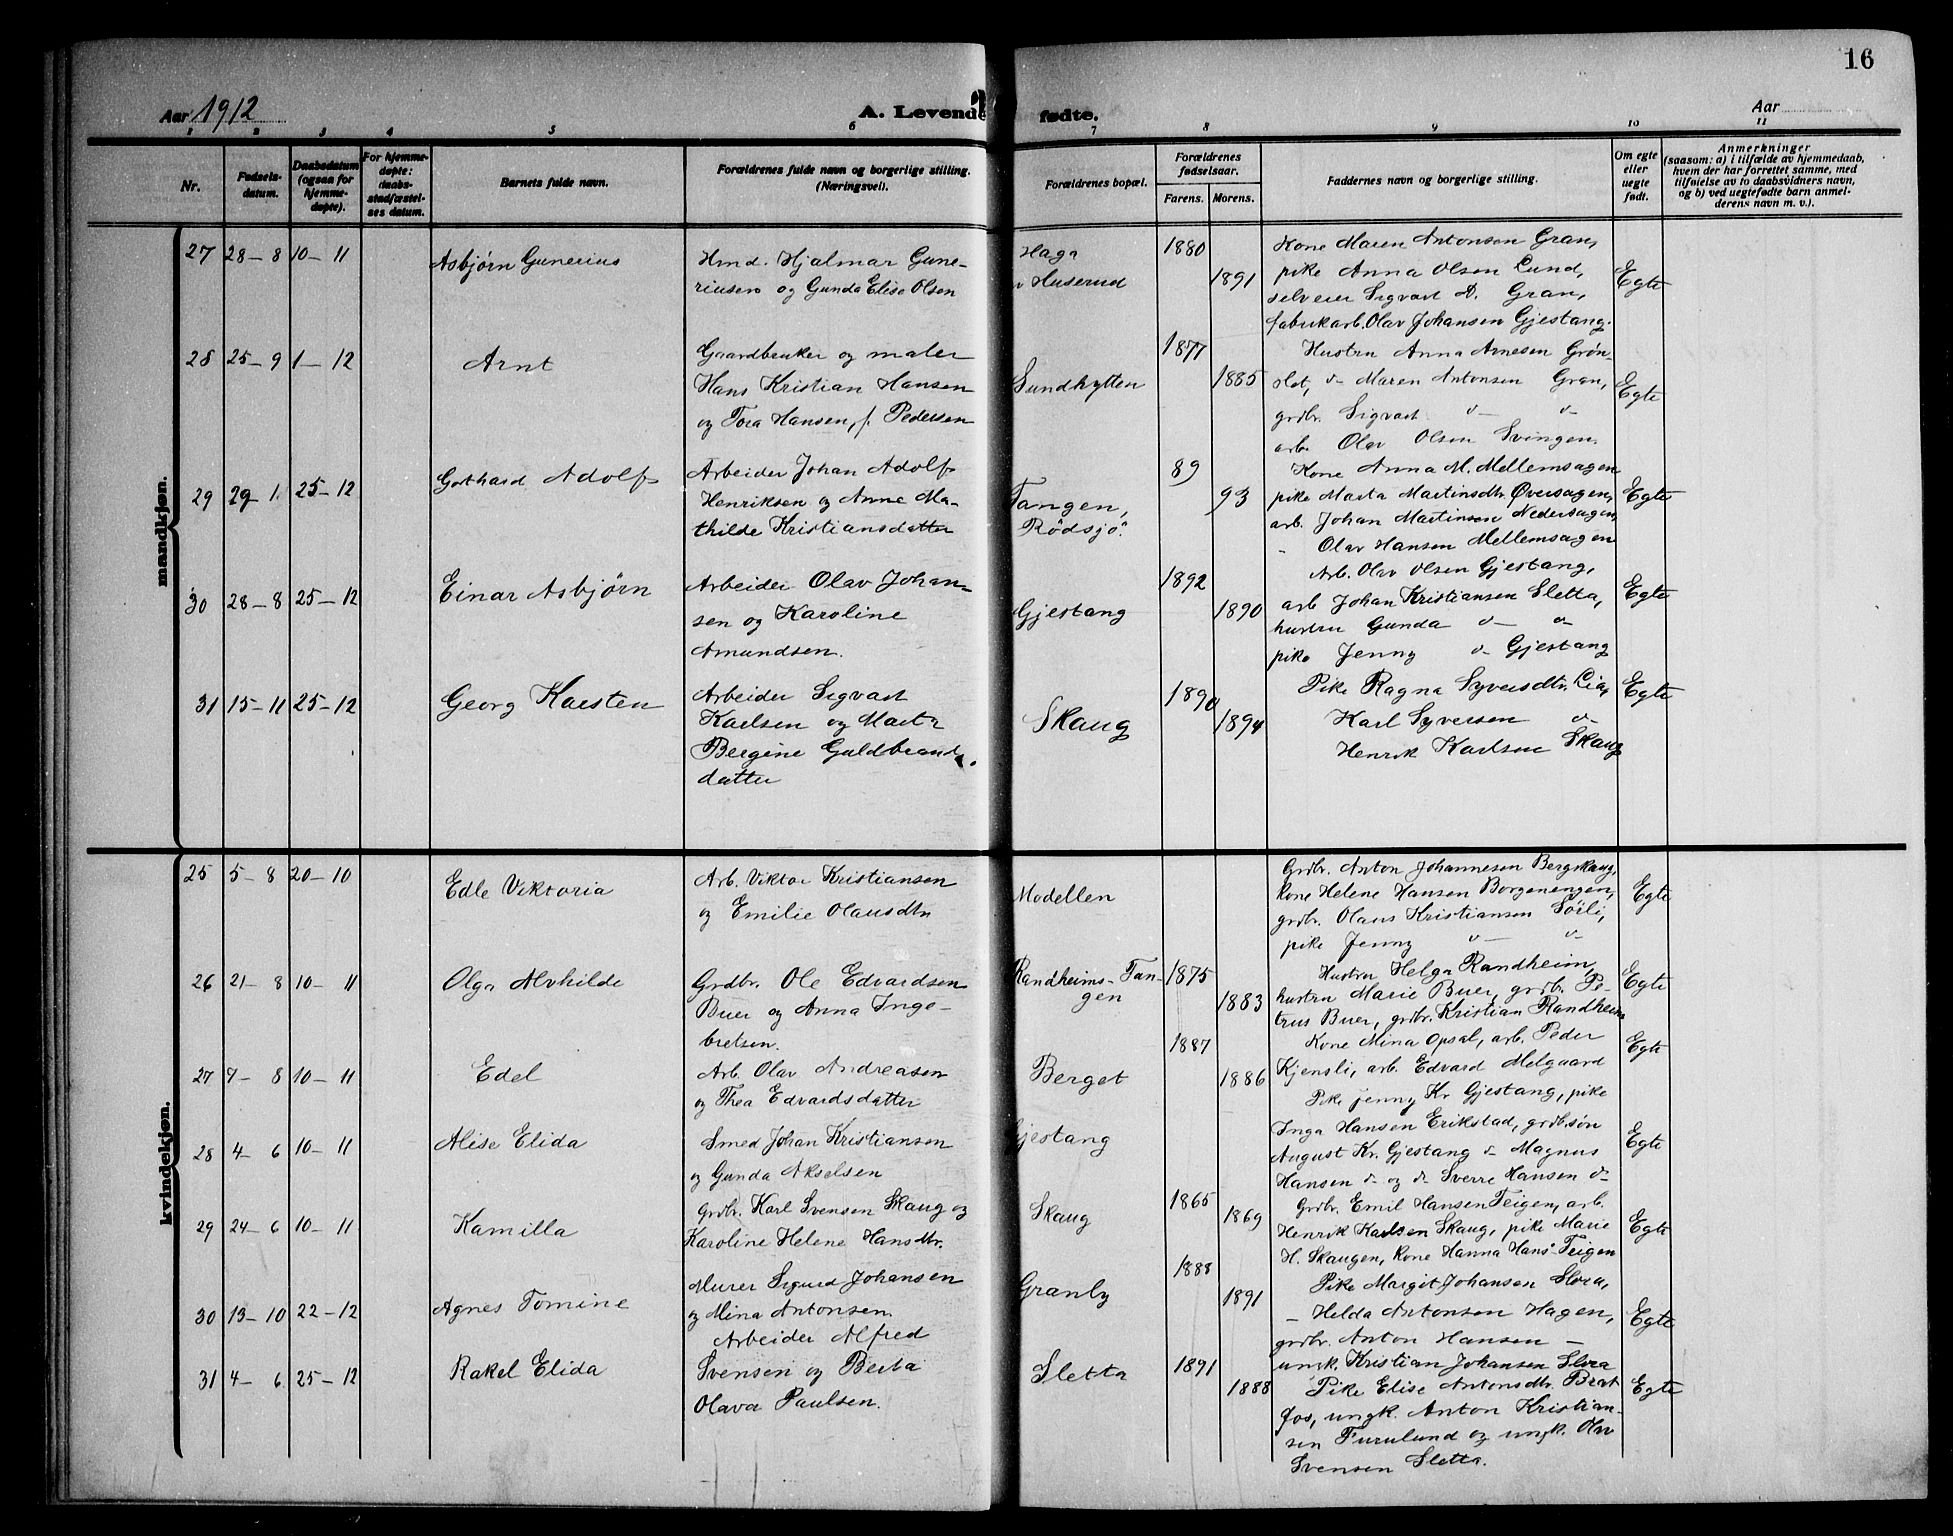 16
Aar 1912
A. Levende fødte.
Aar
1 2 3 4 5 6 7 8 9 10 11
Nr.
Fødsels-
datum.
Daabsdatum
(ogsaa for
hjemme-
døpte).
For hjemme-
døpte:
daabs-
stadfæstel-
ses datum.
Barnets fulde navn.
Forældrenes fulde navn og borgerlige stilling.
(Næringsvei).
Forældrenes bopæl.
Forældrenes
fødselsaar.
Farens. Morens.
Faddernes navn og borgerlige stilling.
Om egte
eller
uegte
født.
Anmerkninger
(saasom: a) i tilfælde av hjemmedaab,
hvem der har forrettet samme, med
tilføielse av to daabsvidners navn,
og b) ved uegtefødte barn anmel-
derens navn m. v.).
mandkjøn.
27 28–8 10–11
Asbjørn Gunerius
Hmd. Hjalmar Gune-
riusen og Gunda Elise Olsen
Haga
v Huserud
1880
1891
Kone Maren Antonsen Gran,
pike Anna Olsen Lund,
selveier Sigvart A. Gran,
fabrikarb. Olav Johansen Gjestang.
Egte
28 25–9 1–12
Arnt
Gaardbruker og maler
Hans Kristian Hansen
og Tora Hansen, f. Pedersen
Sundhytten
1877
1885
Hustru Anna Arnesen Grøn
slet, d– Maren Antonsen Gran,
grdbr. Sigvart d– d–
arb. Olav Olsen Svingen.
Egte
29 29–1. 25–12
Gothard Adolf
Arbeider Johan Adolf
Henriksen og Anne Ma-
thilde Kristiansdatter
Tangen,
Rödsjö.
89
93
Kone Anna M. Mellemsagen
pike Marta Martinsdtr. Øversagen,
arb. Johan Martinsen Nedersagen,
– Olav Hansen Mellemsagen
Egte
30 28–8 25–12
Einar Asbjørn
Arbeider Olav Johan-
sen og Karoline
Amundsen.
Gjestang
1892
1890
Arb. Olav Olsen Gjestang,
arb Johan Kristiansen Sletta,
hustru Gunda d– d–
pike Jenny d– Gjestang
Egte
31 15–11 25–12
Georg Karsten
Arbeider Sigvart
Karlsen og Marta
Bergine Guldbrands
datter
Skaug
1890
1894
Pike Ragna Syversdtr. Lia,
Karl Syversen d–
Henrik Karlsen Skaug
Egte
kvindekjøn.
25 5–8 20–10
Edle Viktoria
Arb. Viktor Kristiansen
og Emilie Olausdtr
Modellen
Grdbr. Anton Johannesen Bergskaug,
kone Helene Hansen Borgenengen,
grdbr. Olaus Kristiansen Söili,
pike Jenny d– d–
Egte
26 21–8 10–11
Olga Alvhilde
Grdbr. Ole Edvardsen
Buer og Anna Inge-
bretsen.
Randheims-Tan-
gen
1875
1883
Hustru Helga Randheim,
hustru Marie Buer, grdb. Pe-
trus Buer, grdbr. Kristian Randheim
Egte
27 7–8 10–11
Edel
Arb. Olav Andreasen
og Thea Edvardsdatter
Berget
1887
1886
Kone Mina Opsal, arb. Peder
Kjensli, arb. Edvard Melgaard
Egte
28 4–6 10–11
Alise Elida
Smed Johan Kristiansen
og Gunda Akselsen
Gjestang
Pike Jenny Kr Gjestang, pike
Inga Hansen Erikstad, grdb.søn
August Kr. Gjestang d– Magnus
Hansen d– og d– Sverre Hansen d–
Egte
29 24–6 10–11
Kamilla
Grdbr. Karl Svensen Skaug og
Karoline Helene Hansdtr.
Skaug
1865
1869
Grdbr. Emil Hansen Teigen, arb.
Henrik Karlsen Skaug, pike Marie
H. Skaugen, kone Hanna Hans Teigen
Egte
30 13–10 22–12
Agnes Tomine
Murer Sigurd Johansen
og Mina Antonsen
Granly
1888
1891
Pike Margit Johansen Slora,
– Helda Antonsen Hagen,
grdbr. Anton Hansen –
ungk. Kristian Johansen Slora
Egte
31 4–6 25–12
Rakel Elida
Arbeider Alfred
Svensen og Berta
Olava Paulsen.
Sletta
1891
1888
Pike Elise Antonsdtr. Brat
fos, ungk. Anton Kristian-
sen Furulund og ungk. Olav
Svensen Sletta.
Egte